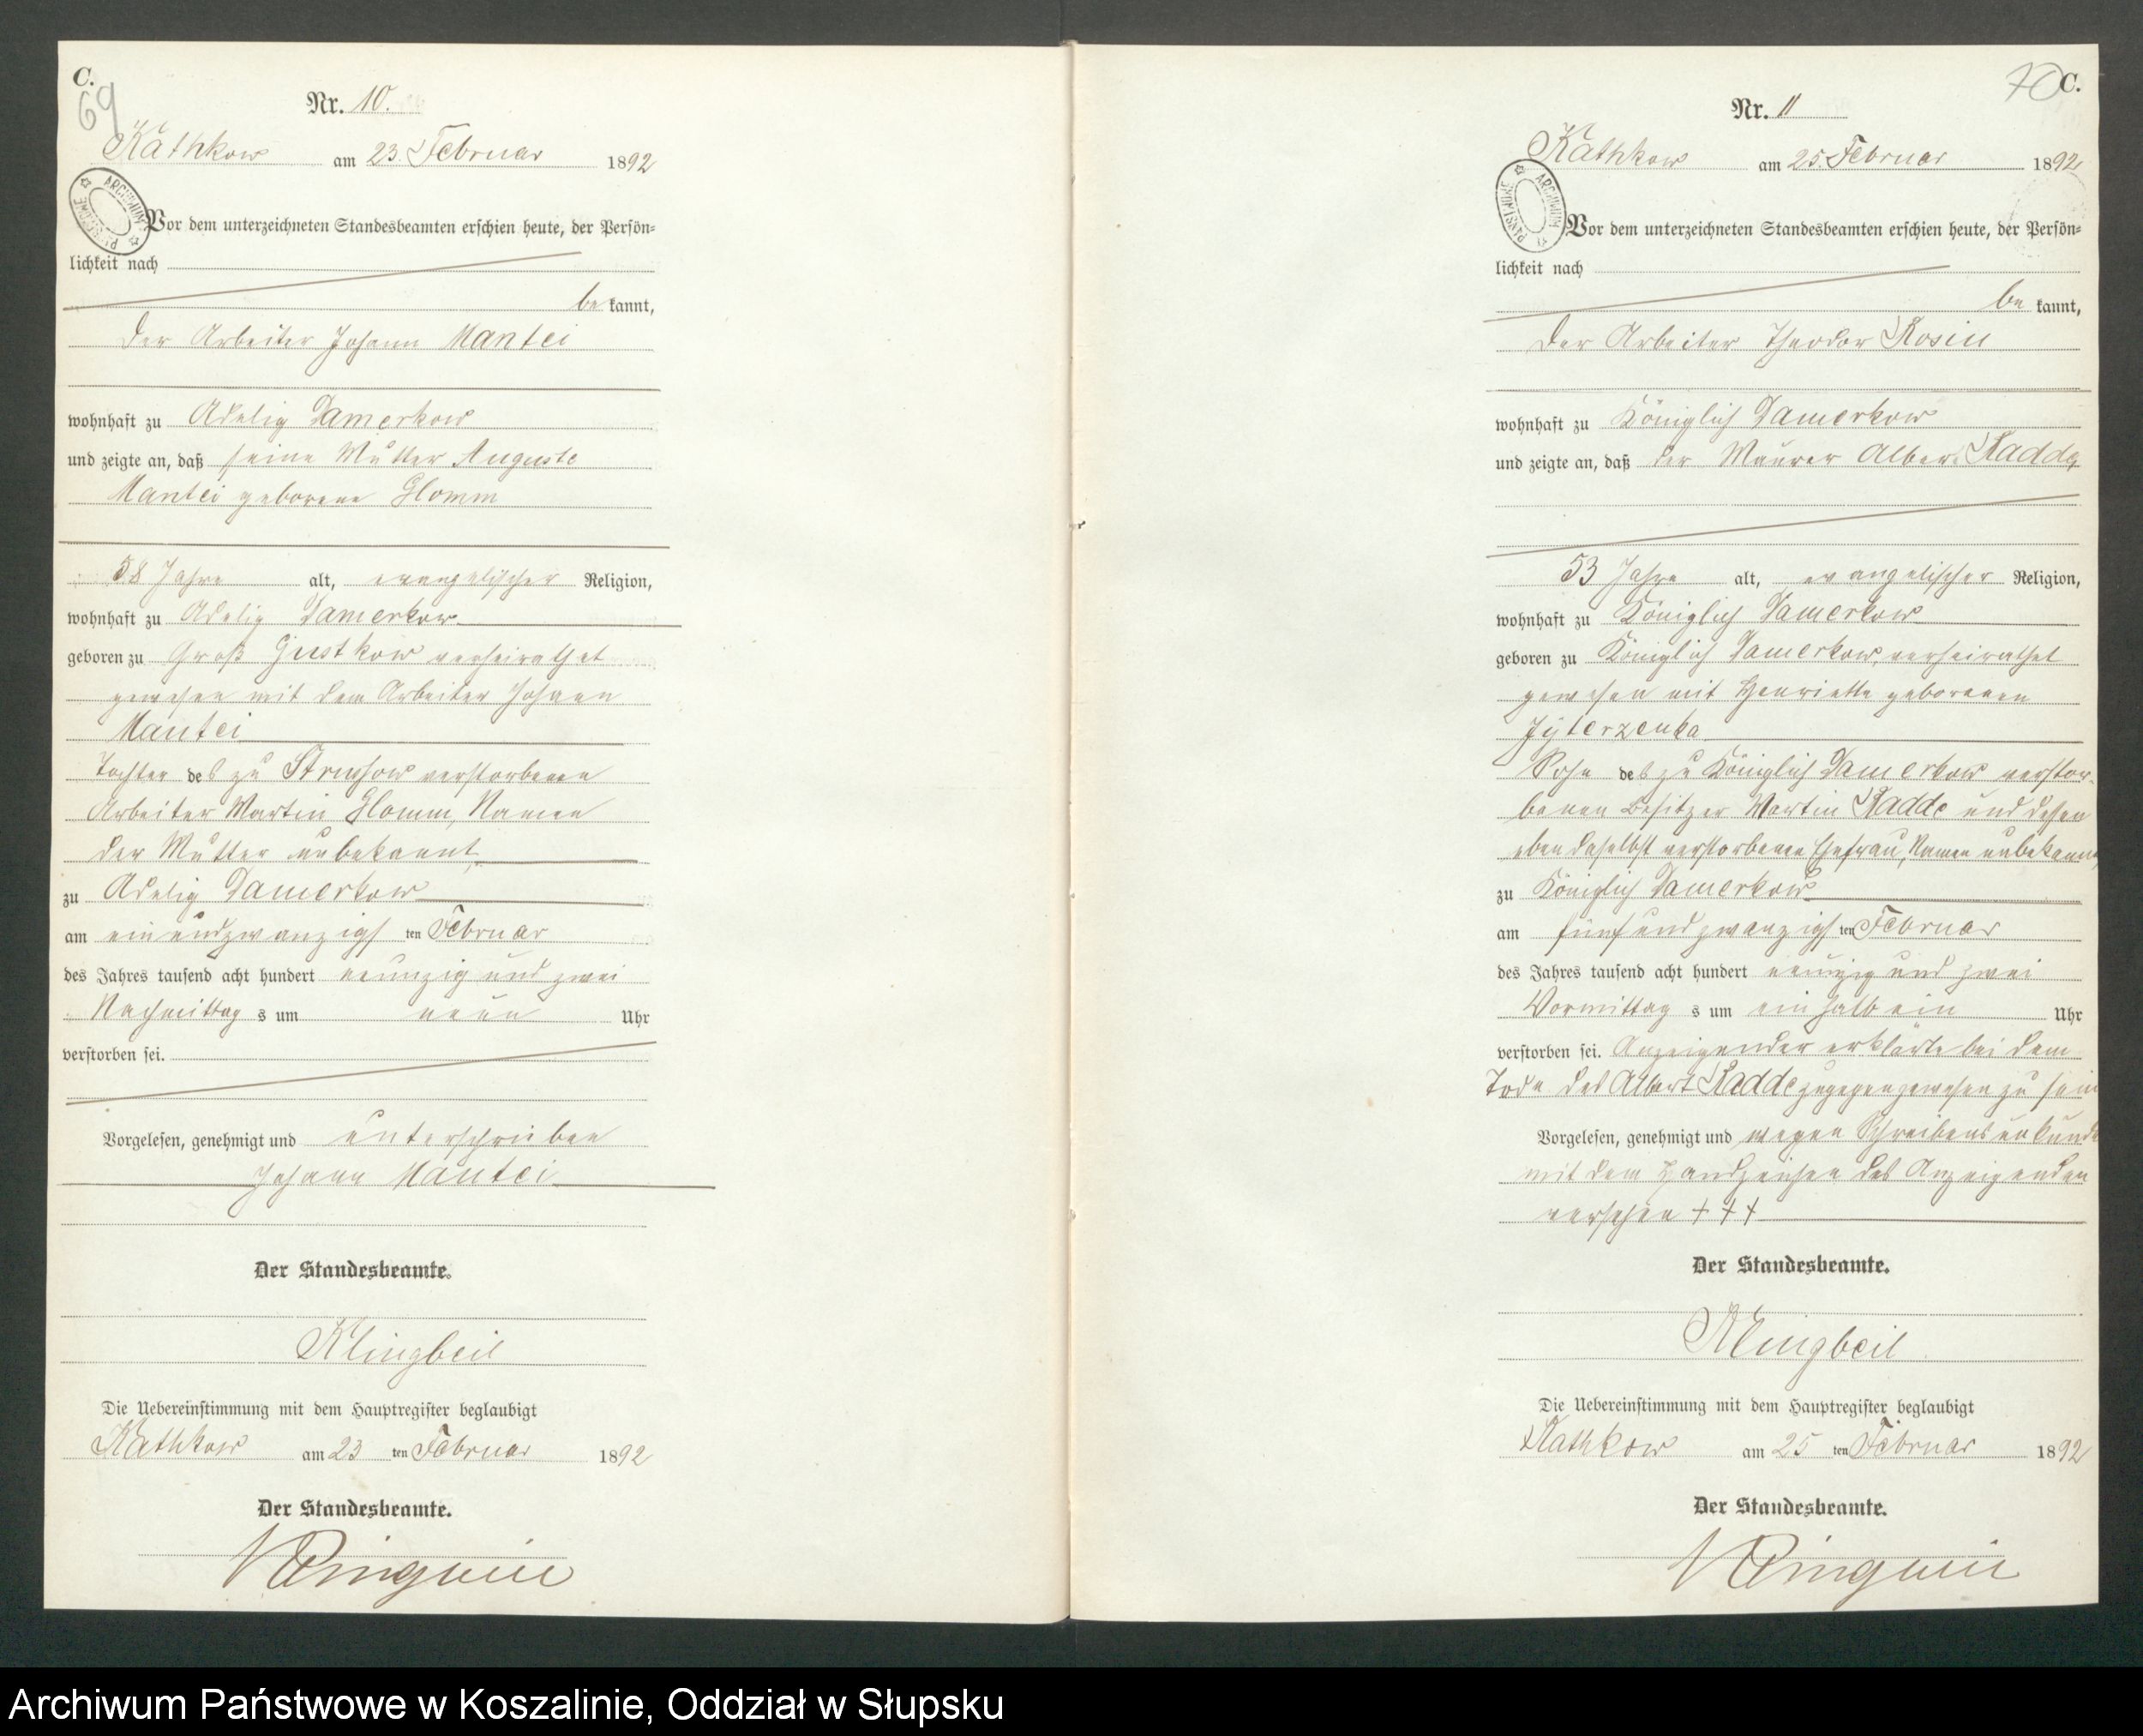 C.
69
Nr. 10.
Kathkow am 23. Februar 1892
Vor dem unterzeichneten Standesbeamten erschien heute, der Persön-
lichkeit nach
be kannt,
der Arbeiter Johann Mantei
wohnhaft zu Adelig Damerkow
und zeigte an, daß seine Mutter Auguste
Mantei geborene Glomm
58 Jahre alt, evangelischer Religion,
wohnhaft zu Adelig Damerkow
geboren zu Groß Gustkow verheirathet
gewesen mit dem Arbeiter Johann
Mantei
Tochter des zu Strussow verstorbenen
Arbeiter Martin Glomm, Namen
der Mutter unbekannt
zu Adelig Damerkow
am einundzwanzigs ten Februar
des Jahres tausend acht hundert neunzig und zwei
Nachmittag s um neun Uhr
verstorben sei.
Vorgelesen, genehmigt und unterschrieben
Johann Mantei
Der Standesbeamte.
Klingbeil
Die Uebereinstimmung mit dem Hauptregister beglaubigt
Kathkow am 23 ten Februar 1892
Der Standesbeamte.
Klingbeil
70
C.
Nr. 11
Kathkow am 25. Februar 1892
Vor dem unterzeichneten Standesbeamten erschien heute, der Persön-
lichkeit nach
be kannt,
der Arbeiter Theodor Rosin
wohnhaft zu Königlich Damerkow
und zeigte an, daß der Maurer Albert Radde,
53 Jahre alt, evangelischer Religion,
wohnhaft zu Königlich Damerkow
geboren zu Königlich Damerkow, verheirathet
gewesen mit Henriette geborenen
Jyterzenka
Sohn des zu Königlich Damerkow verstor-
benen Besitzer Martin Radde und dessen
eben daselbst verstorbenen Ehefrau, Namen unbekannt,
zu Königlich Damerkow
am fünfundzwanzigs ten Februar
des Jahres tausend acht hundert neunzig und zwei
Vormittag s um ein halb ein Uhr
verstorben sei. Anzeigender erklärte bei dem
Tode des Albert Radde zugegen gewesen zu sein
Vorgelesen, genehmigt und wegen Schreibensunkunde
mit dem Handzeichen des Anzeigenden
versehen + + +
Der Standesbeamte.
Klingbeil
Die Uebereinstimmung mit dem Hauptregister beglaubigt
Kathkow am 25 ten Februar 1892
Der Standesbeamte.
Klingbeil
Archiwum Państwowe w Koszalinie, Oddział w Słupsku